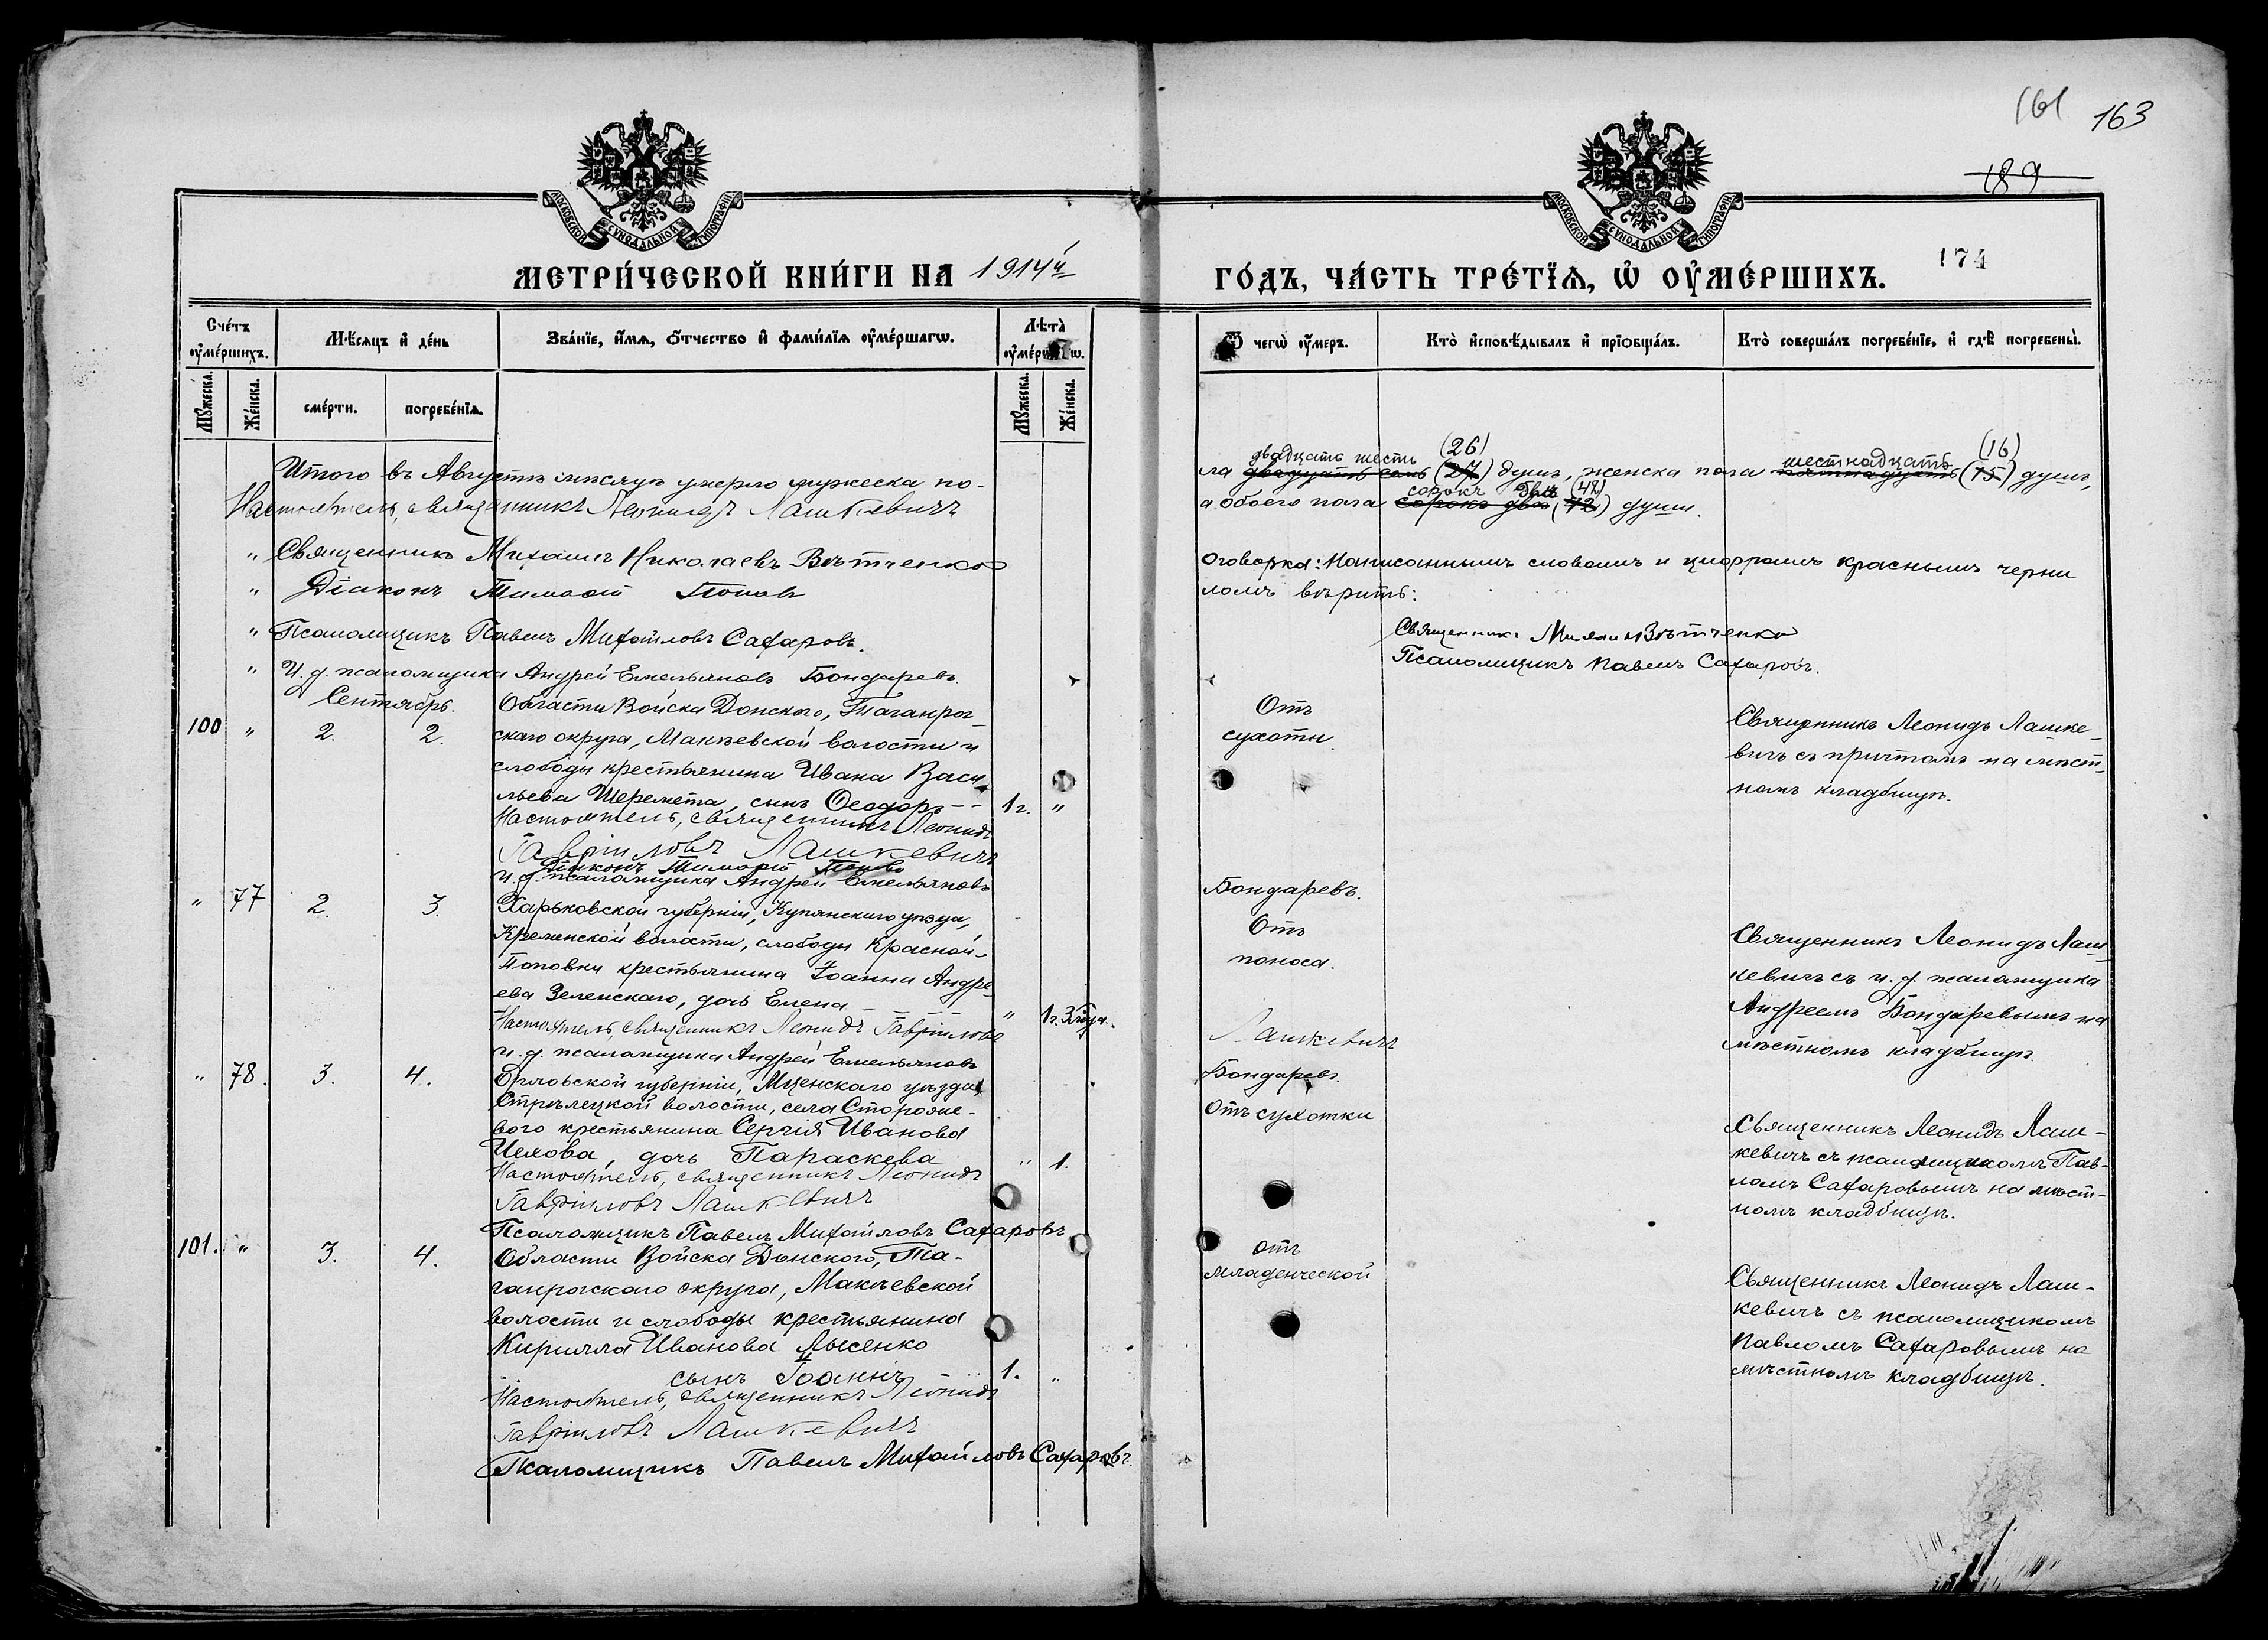 161 163
189
174
МОСКОВСКОЙ СѴНОДАЛЬНОЙ ТИПОГРАФІИ
МОСКОВСКОЙ СѴНОДАЛЬНОЙ ТИПОГРАФІИ
МЕТРИ́ЧЕСКОЙ КНИ́ГИ НА 1914й ГО́ДЪ, ЧА́СТЬ ТРЕ́ТЇѦ, Ѿ ОУ҆МЕ́РШИХЪ.
Сче́тъ оу҆ме́ршихъ.
Мѣ́сѧцъ и҆ де́нь
Зва́нїе, и҆́мѧ, ѻ҆́тчество и҆ фами́лїѧ оу҆ме́ршагѡ.
Лѣ́та оу҆ме́ршагѡ.
Ѿ чегѡ̀ оу҆́меръ.
Кто̀ и҆сповѣ́дывалъ и҆ прїѻбща́лъ.
Кто̀ соверша́лъ погребе́нїе, и҆ гдѣ̀ погребены̀.
Мꙋ́жеска.
Же́нска.
сме́рти.
погребе́нїѧ.
Мꙋ́жеска.
Же́нска.
Итого въ Августѣ мѣсяцѣ умерло мужеска по-
Настоятель, священникъ Леонидъ Лашкевичъ
" Священникъ Михаилъ Николаевъ Вѣтченко
" Діаконъ Тимоѳей Поповъ
" Псаломщикъ Павелъ Михайловъ Сахаровъ.
" И. д. псаломщика Андрей Емельяновъ Бондаревъ.
двадцать шесть (26) шестнадцать (16)
ла двадцать семь (27) душъ, женска пола пятнадцать (15) душъ,
сорокъ двѣ (42)
а обоего пола сорокъ двѣ (42) души.
Оговорка: Написаннымъ словамъ и цифрамъ красными черни
ломъ вѣрить:
Священникъ Михаилъ Вѣтченко
Псаломщикъ Павелъ Сахаровъ.
Сентябрь.
100 " 2. 2.
Области Войска Донского, Таганрог-
скаго округа, Макѣевской волости и
слободы крестьянина Ивана Васи-
льева Шеремета, сынъ Ѳеодоръ -- 1 г. "
Настоятель, священникъ Леонидъ
Гавріиловъ Лашкевичъ
Діаконъ Тимоѳей Поповъ
И. д. псаломщика Андрей Емельяновъ
Бондаревъ.
Отъ
сухоты.
Священникъ Леонидъ Лашке-
вичъ съ причтомъ на мѣст-
номъ кладбищѣ.
" 77 2. 3.
Харьковской губерніи, Купянскаго уѣзда,
Кременской волости, слободы Красной-
Поповки крестьянина Іоанна Андре-
ева Зеленскаго, дочь Елена - " 1 г. 3 мѣца.
Настоятель, священникъ Леонидъ Гавріиловъ
Лашкевичъ
И. д. псаломщика Андрей Емельяновъ
Бондаревъ.
Отъ
поноса.
Священникъ Леонидъ Лаш-
кевичъ съ и. д. псаломщика
Андреемъ Бондаревымъ на
мѣстномъ кладбищѣ.
" 78. 3. 4.
Орловской губерніи, Мценскаго уѣзда,
Стрѣлецкой волости, села Стороже-
вого крестьянина Сергія Иванова
дочь Параскева " 1.
Настоятель, священникъ Леонидъ
Гавріиловъ Лашкевичъ
Псаломщикъ Павелъ Михайловъ Сахаровъ
Отъ сухотки
Священникъ Леонидъ Лаш-
кевичъ съ псаломщикомъ Пав-
ломъ Сахаровымъ на мѣст-
номъ кладбищѣ.
101. " 3. 4.
Области Войска Донского, Та-
ганрогскаго округа, Макѣевской
волости и слободы крестьянина
Кирилла Иванова Лысенко
сынъ Іоаннъ 1. "
Настоятель, священникъ Леонидъ
Гавріиловъ Лашкевичъ
Псаломщикъ Павелъ Михайловъ Сахаровъ
отъ
младенческой
Священникъ Леонидъ Лаш-
кевичъ съ псаломщикомъ
Павломъ Сахаровымъ на
мѣстномъ кладбищѣ.